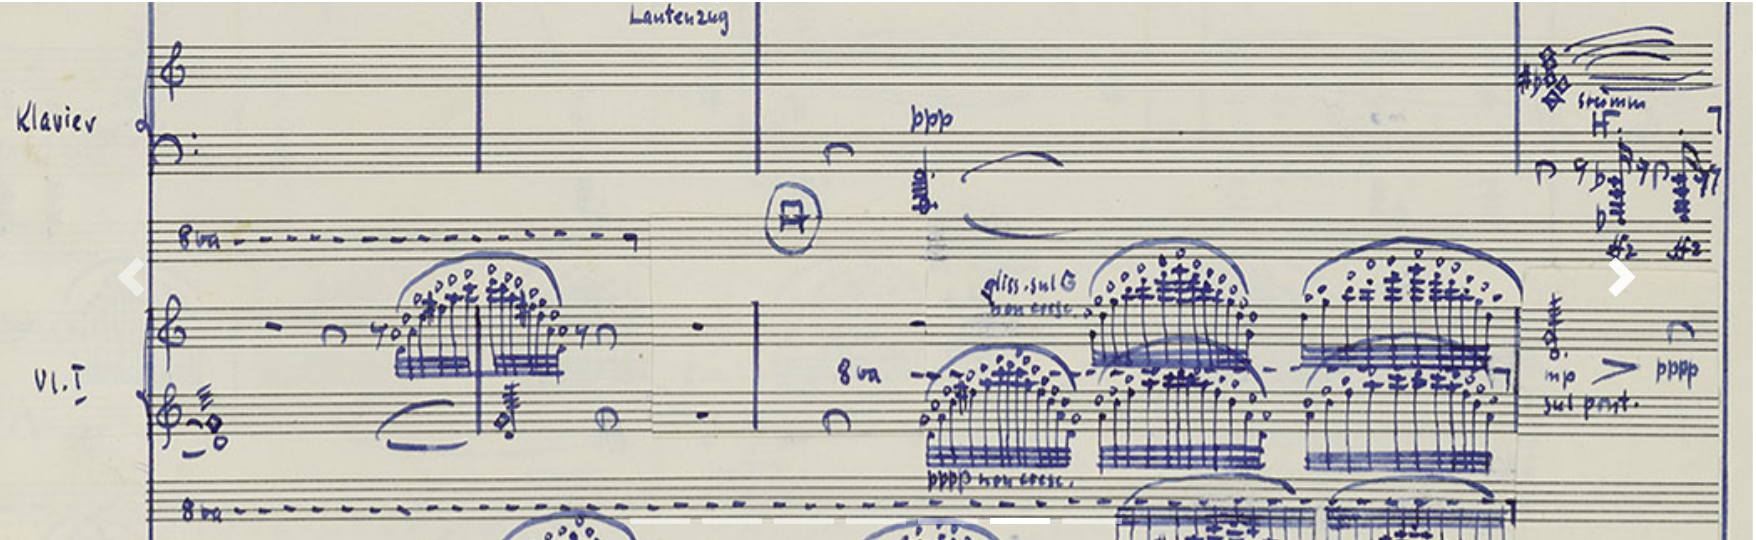 Lautenzug
Klavier
ppp
stumm
8va
gliss. sul G
non cresc.
Vl. I
8va
mp > pppp
sul pont.
pppp non cresc.
8va